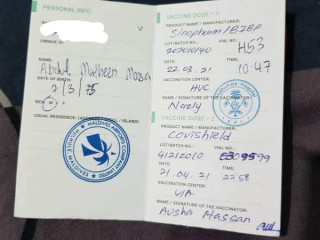 PERSONAL INFO
NAME:
Abdul Muheen Moosa
DATE OF BIRTH:
2/3/75
SEX: M
USUAL RESIDENCE (ADDRESS/ISLAND)
MALDIVES AIRPORTS COMPANY LIMITED
VACCINE DOSE - 1
PRODUCT NAME / MANUFACTURER:
Sinopharm/BIBP
LOT/BATCH NO: VIAL NO:
H53
DATE: TIME:
22.03.21 10:47
VACCINATION CENTER:
HVC
NAME / SIGNATURE OF THE VACCINATOR
Nazly
VACCINE DOSE - 2
PRODUCT NAME / MANUFACTURER:
Covishield
LOT/BATCH NO: VIAL NO:
412Z010
DATE: TIME:
21.04.21 22:58
VACCINATION CENTER:
VIA
NAME / SIGNATURE OF THE VACCINATOR
Ausha Hassan